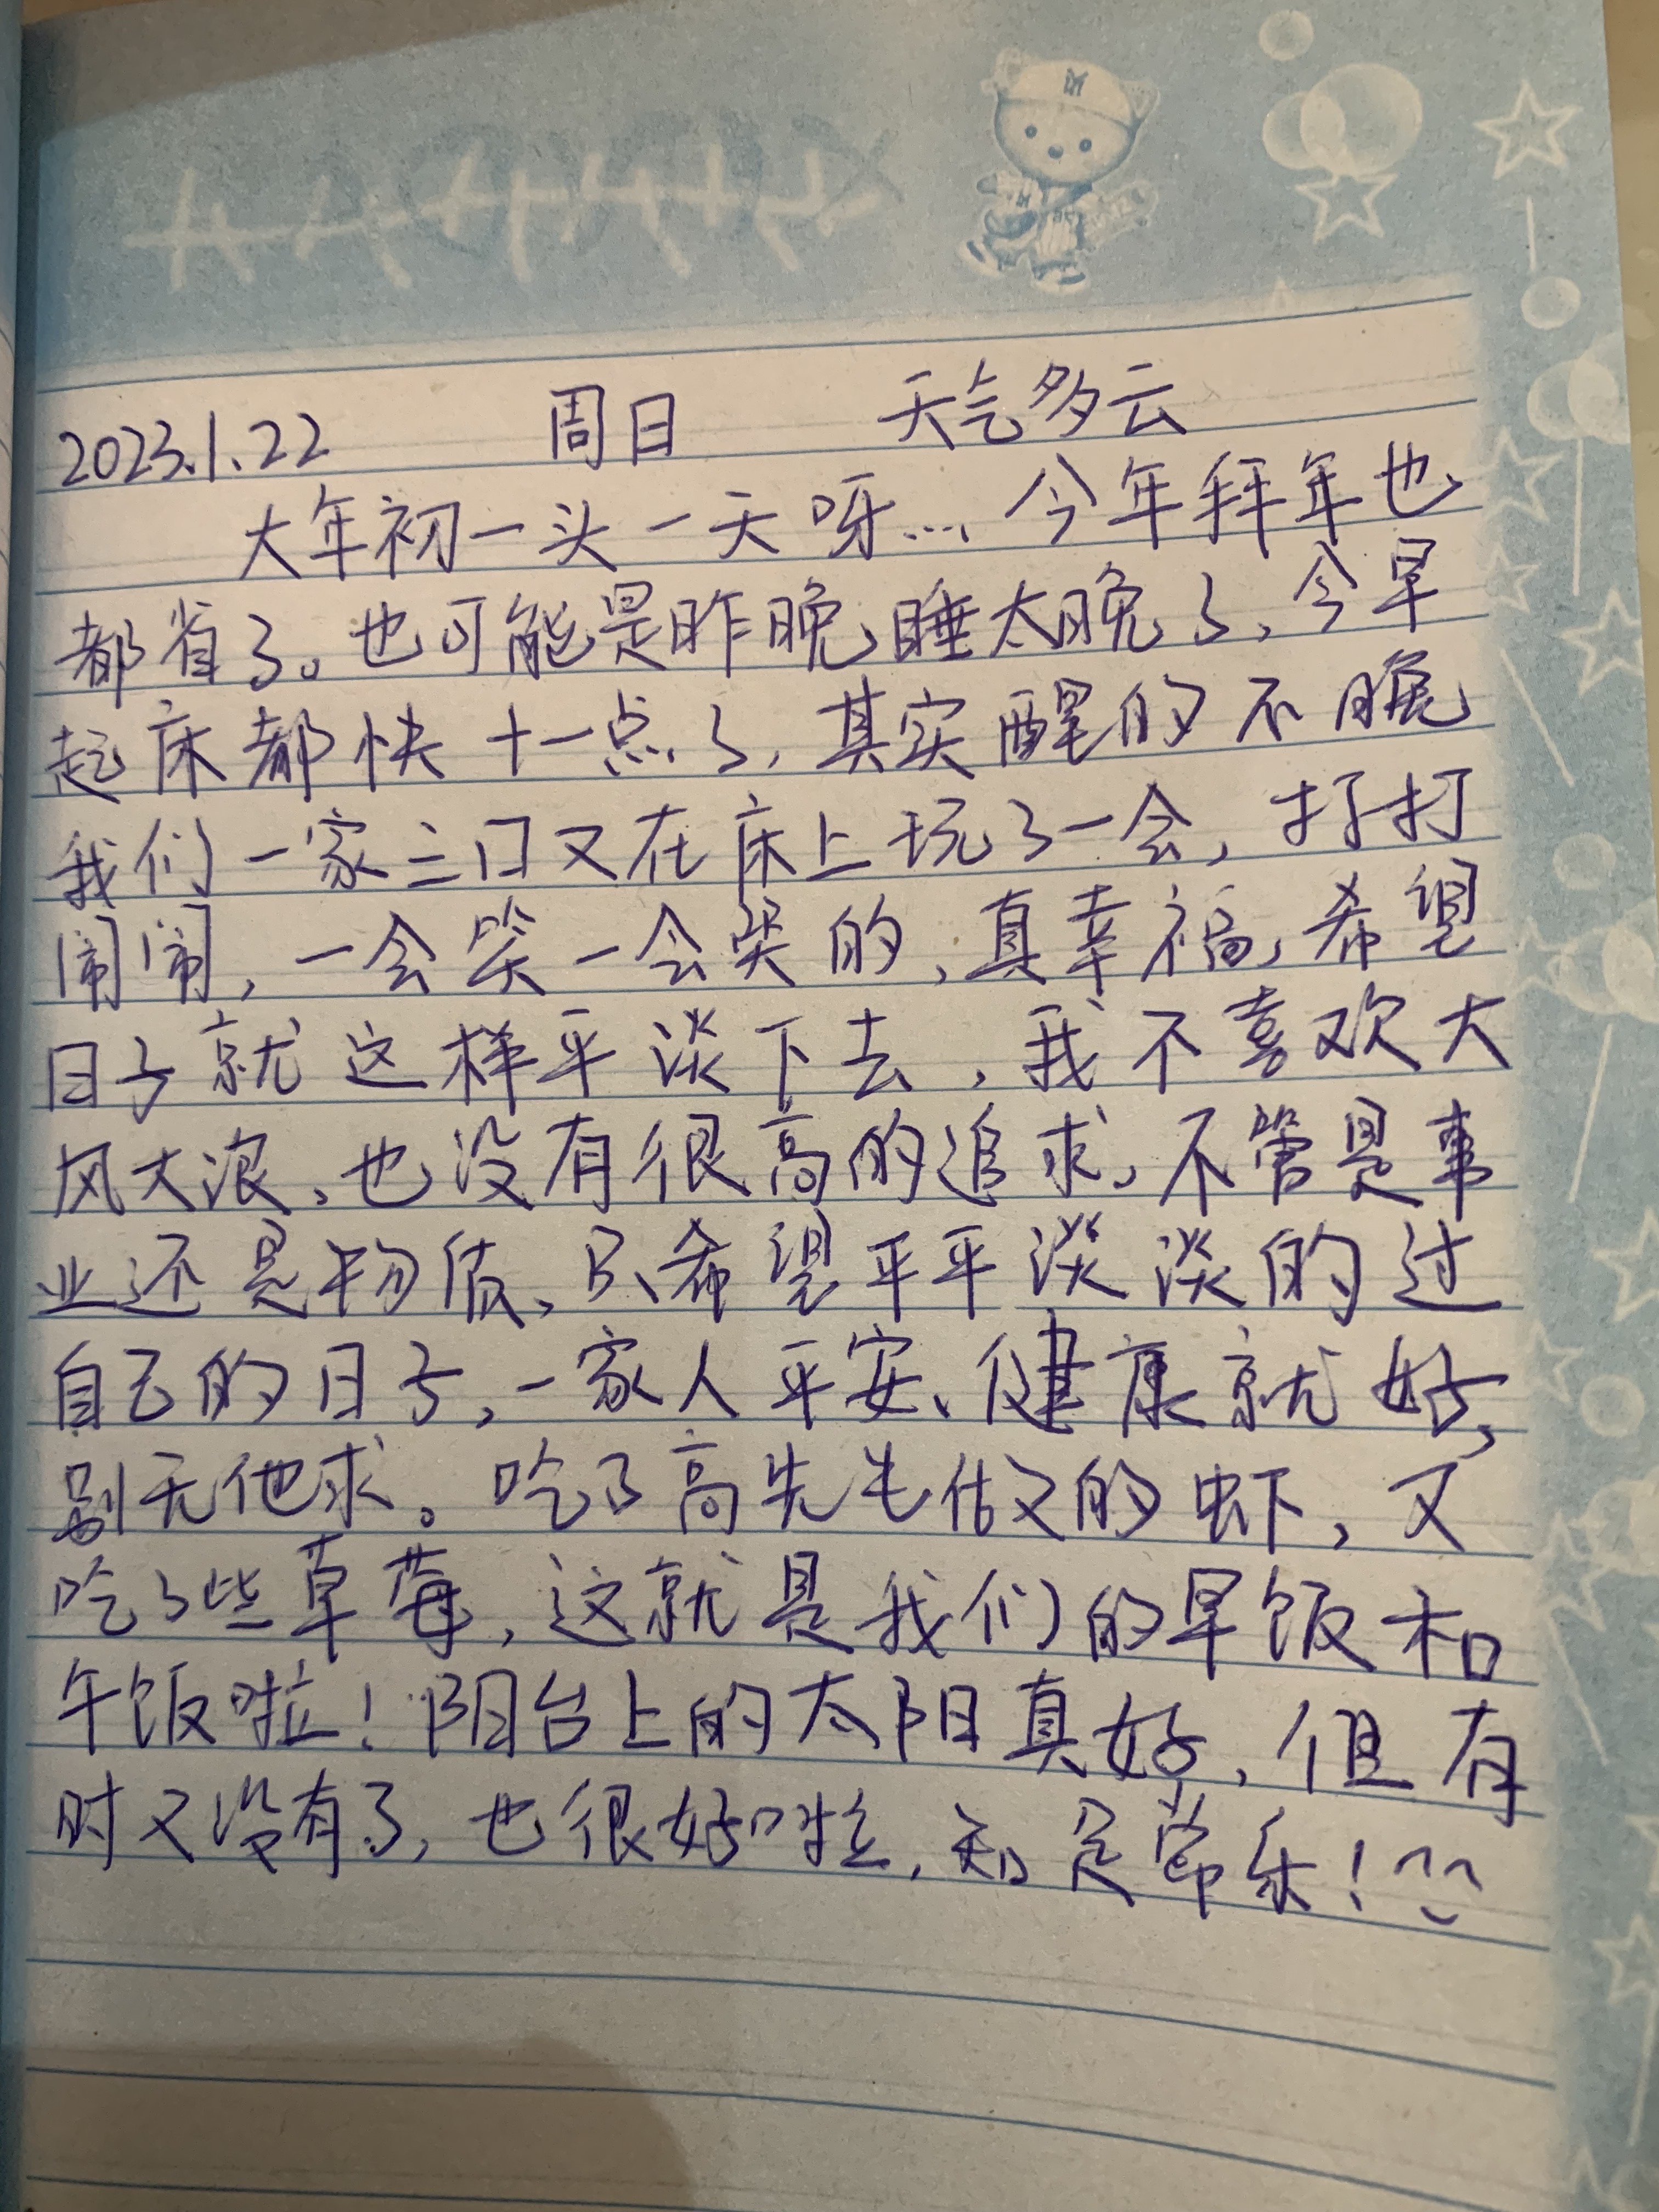 2023.1.22 周日 天气多云
大年初一头一天呀... 今年拜年也
都省了。也可能是昨晚睡太晚了,今早
起床都快十一点了,其实醒的不晚
我们一家三口又在床上玩了一会,打打
闹闹,一会笑一会哭的,真幸福,希望
日子就这样平淡下去,我不喜欢大
风大浪,也没有很高的追求,不管是事
业还是物质,只希望平平淡淡的过
自己的日子,一家人平安、健康就好,
别无他求。吃了高先生做的虾,又
吃了些草莓,这就是我们的早饭和
午饭啦!阳台上的太阳真好,但有
时又没有了,也很好啦,知足常乐!